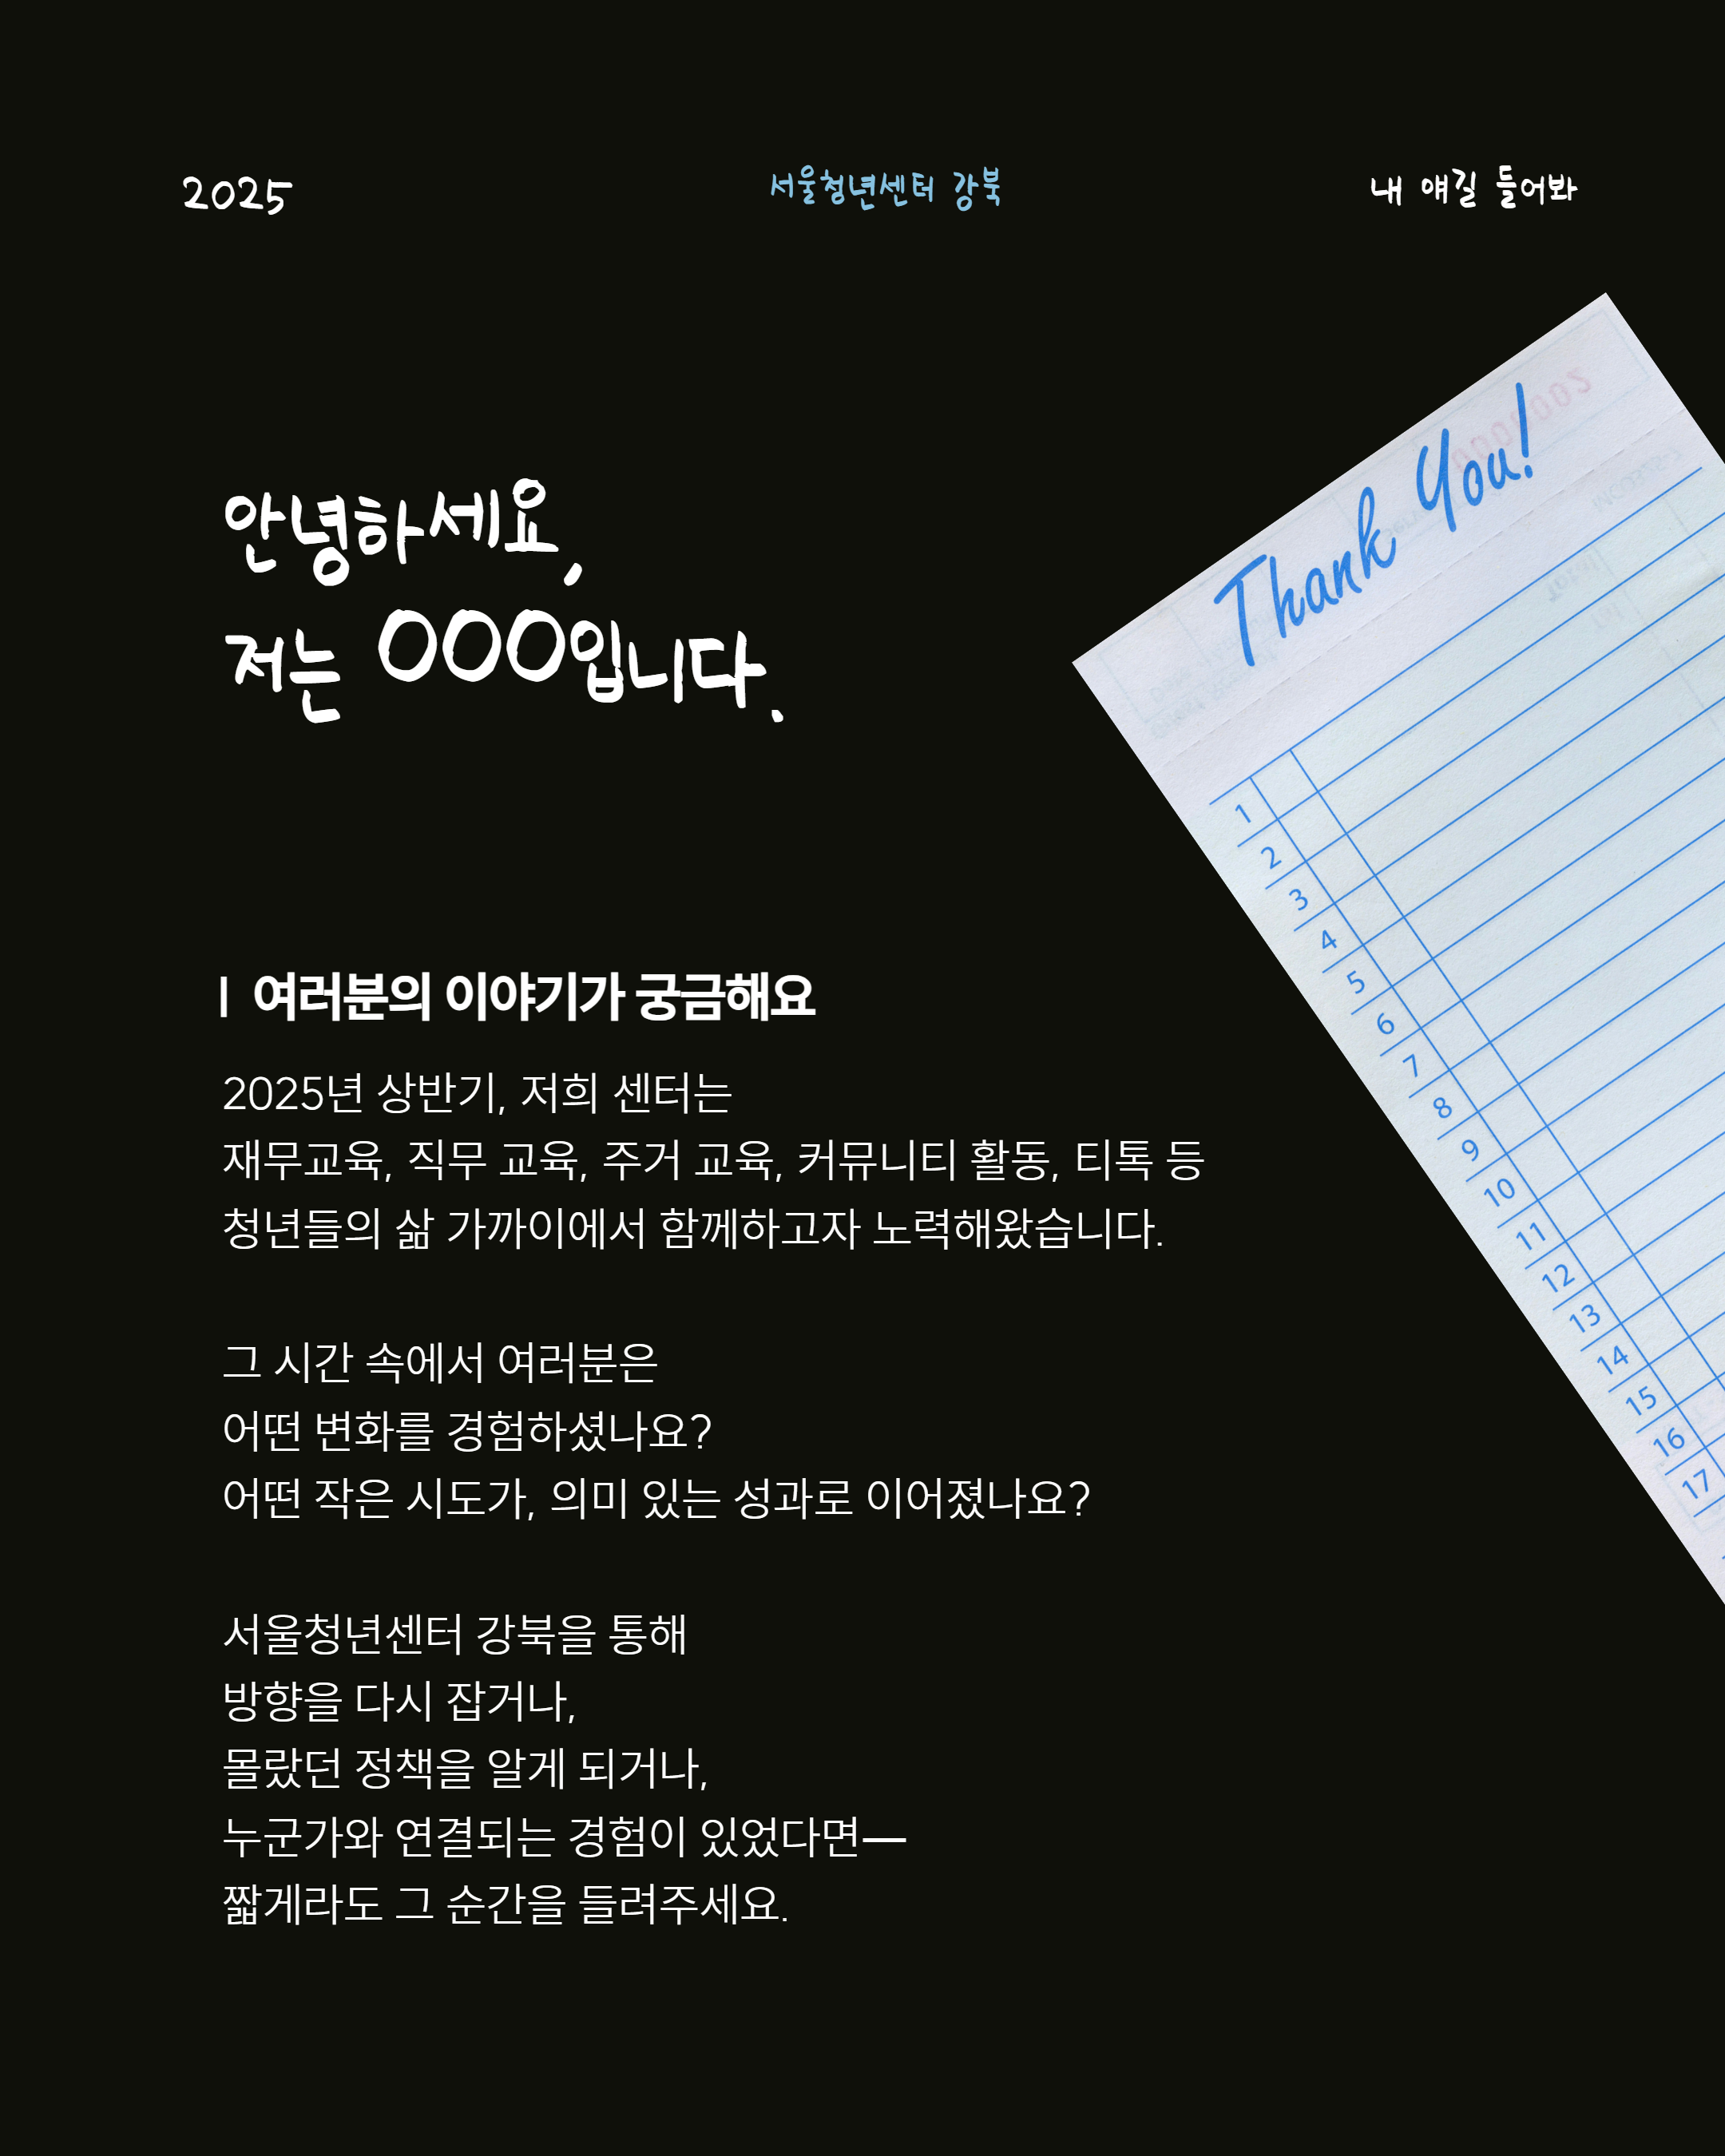 2025
서울청년센터 강북
내 얘길 들어봐
안녕하세요,
저는 OOO입니다.
Thank You!
| 여러분의 이야기가 궁금해요
2025년 상반기, 저희 센터는
재무교육, 직무 교육, 주거 교육, 커뮤니티 활동, 티톡 등
청년들의 삶 가까이에서 함께하고자 노력해왔습니다.
그 시간 속에서 여러분은
어떤 변화를 경험하셨나요?
어떤 작은 시도가, 의미 있는 성과로 이어졌나요?
서울청년센터 강북을 통해
방향을 다시 잡거나,
몰랐던 정책을 알게 되거나,
누군가와 연결되는 경험이 있었다면—
짧게라도 그 순간을 들려주세요.
1
2
3
4
5
6
7
8
9
10
11
12
13
14
15
16
17